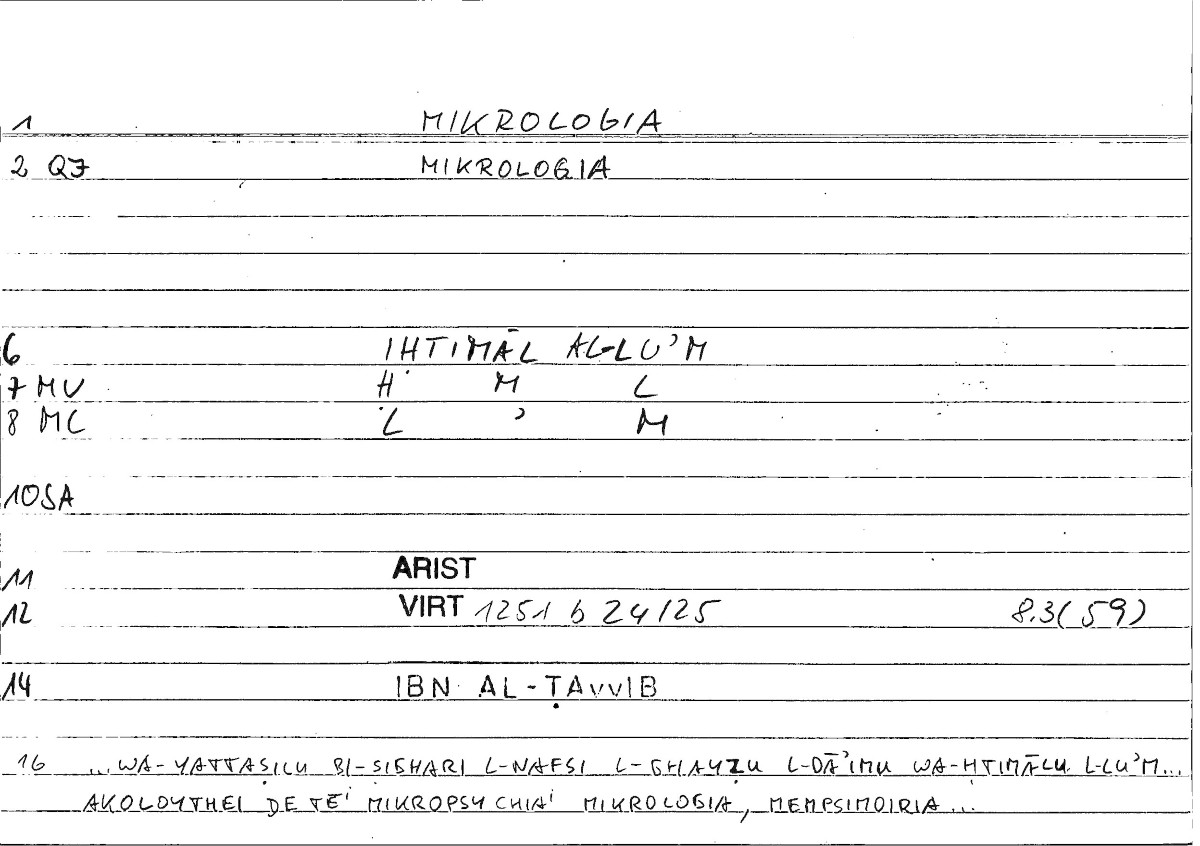 1 MIKROLOGIA
2 QJ MIKROLOGIA
6 IHTIMĀL AL-LU'M
7 MV Ḥ M L
8 MC L ' M
10 SA
11 ARIST
12 VIRT 1251 b 24/25 8.3(59)
14 IBN AL-ṬAYYIB
16 ...WA-YATTAṢILU BI-ṢIGHARI L-NAFSI L-GHAYẒU L-DĀ'IMU WA-ḤTIMĀLU L-LU'M...
AKOLOYTHEI DE TEI MIKROPSYCHIAI MIKROLOGIA, MEMPSIMOIRIA...